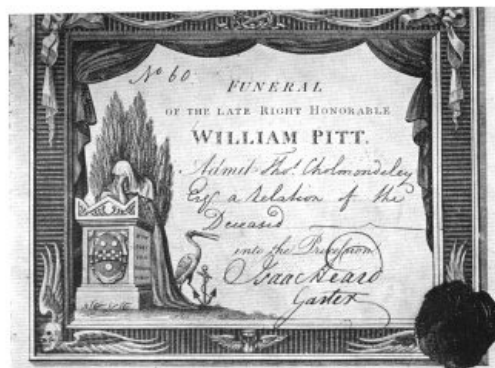 No 60.
FUNERAL
OF THE LATE RIGHT HONORABLE
WILLIAM PITT.
Admit Thos. Cholmondeley
Esq a Relation of the
Deceased
into the Procession
Isaac Heard
Garter